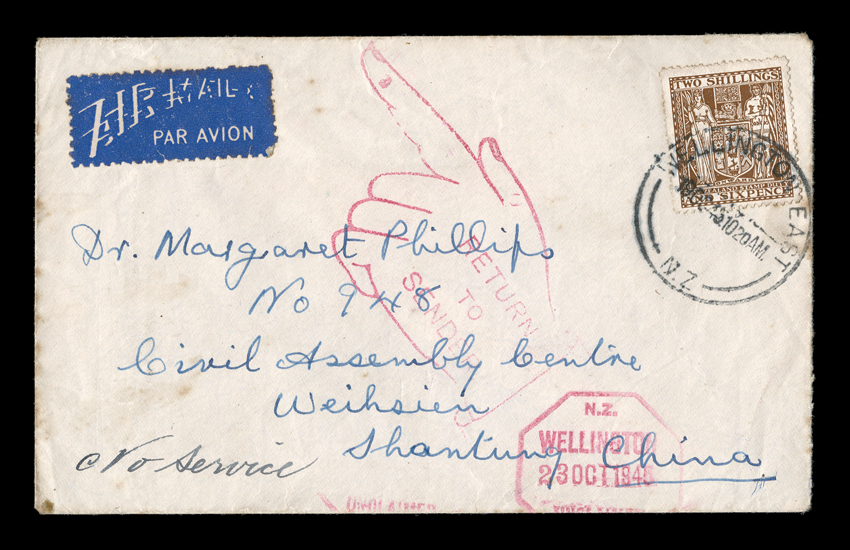 AIR MAIL
PAR AVION
TWO SHILLINGS
SIXPENCE
WELLINGTON EAST
10 20 AM.
N.Z.
RETURN
TO
SENDER
Dr. Margaret Phillips
No 948
Civil Assembly Centre
Weihsien
Shantung China
No Service
N.Z.
WELLINGTON
23 OCT 1945
UNCLAIMED
UNCLAIMED